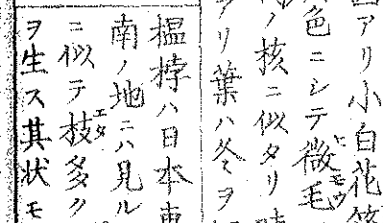 アリ小白花
色ニシテ微毛
ノ核ニ似タリ
アリ葉ハ冬ヲ
榲桲ハ日本東
南ノ地ニハ見ル
ニ似テ枝多ク
ヲ生ス其状モ